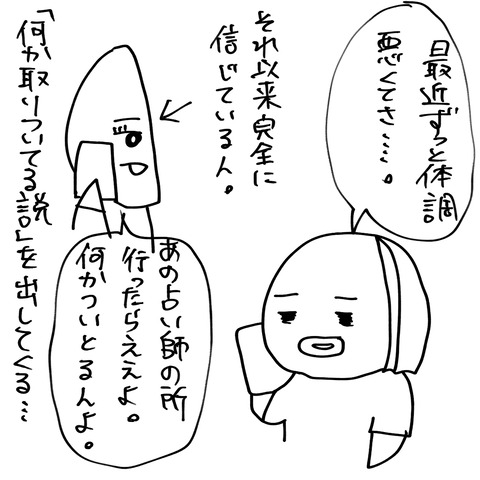 最近ずっと体調
悪くてさ……。
それ以来完全に
信じている人。
あの占い師の所
行ったらええよ。
何かついとるんよ。
「何か取りついてる説」を出してくる…